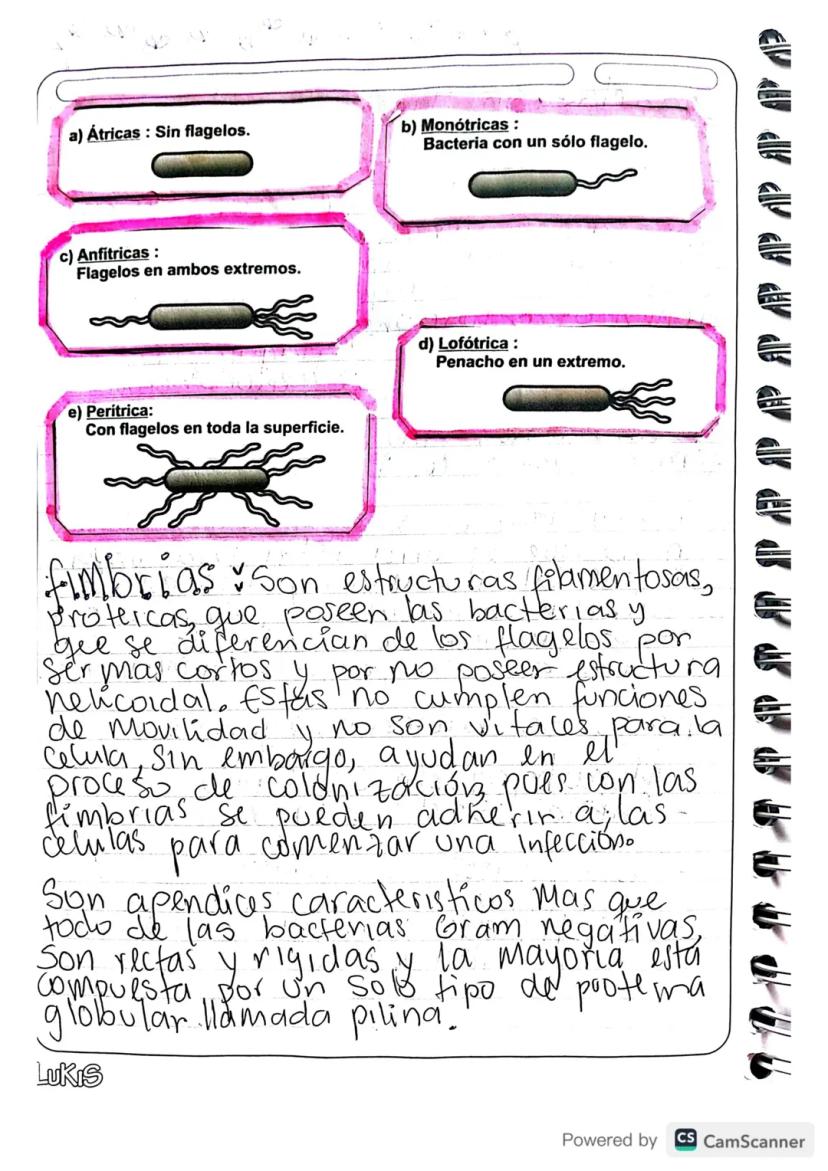 a) Átricas : Sin flagelos.
b) Monótricas :
Bacteria con un sólo flagelo.
c) Anfítricas :
Flagelos en ambos extremos.
d) Lofótrica :
Penacho en un extremo.
e) Perítrica:
Con flagelos en toda la superficie.
fimbrias : Son estructuras filamentosas,
proteicas, que poseen las bacterias y
que se diferencian de los flagelos por
ser mas cortos y por no poseer estructura
helicoidal. Estas no cumplen funciones
de movilidad y no son vitales para la
celula, sin embargo, ayudan en el
proceso de colonización, pues con las
fimbrias se pueden adherir a las
celulas para comenzar una infección.
Son apendices caracteristicos mas que
todo de las bacterias Gram negativas,
Son rectas y rigidas y la mayoria esta
compuesta por un solo tipo de proteina
globular llamada pilina.
LUKIS
Powered by CS CamScanner